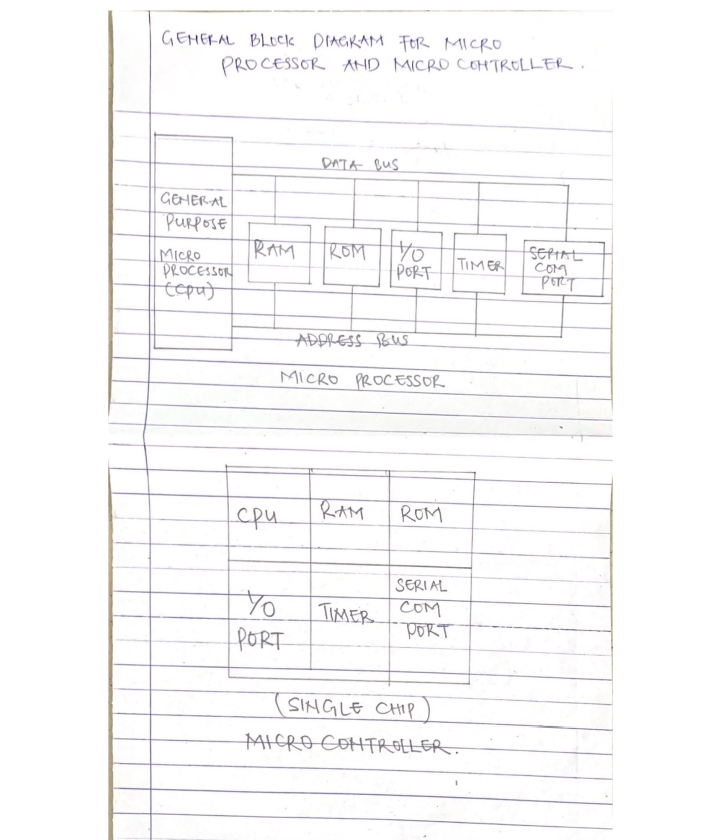 GENERAL BLOCK DIAGRAM FOR MICRO
PROCESSOR AND MICRO CONTROLLER.
DATA BUS
GENERAL
PURPOSE
MICRO
PROCESSOR
(CPU)
RAM
ROM
I/O
PORT
TIMER
SERIAL
COM
PORT
ADDRESS BUS
MICRO PROCESSOR
CPU
RAM
ROM
I/O
PORT
TIMER
SERIAL
COM
PORT
(SINGLE CHIP)
MICRO CONTROLLER.